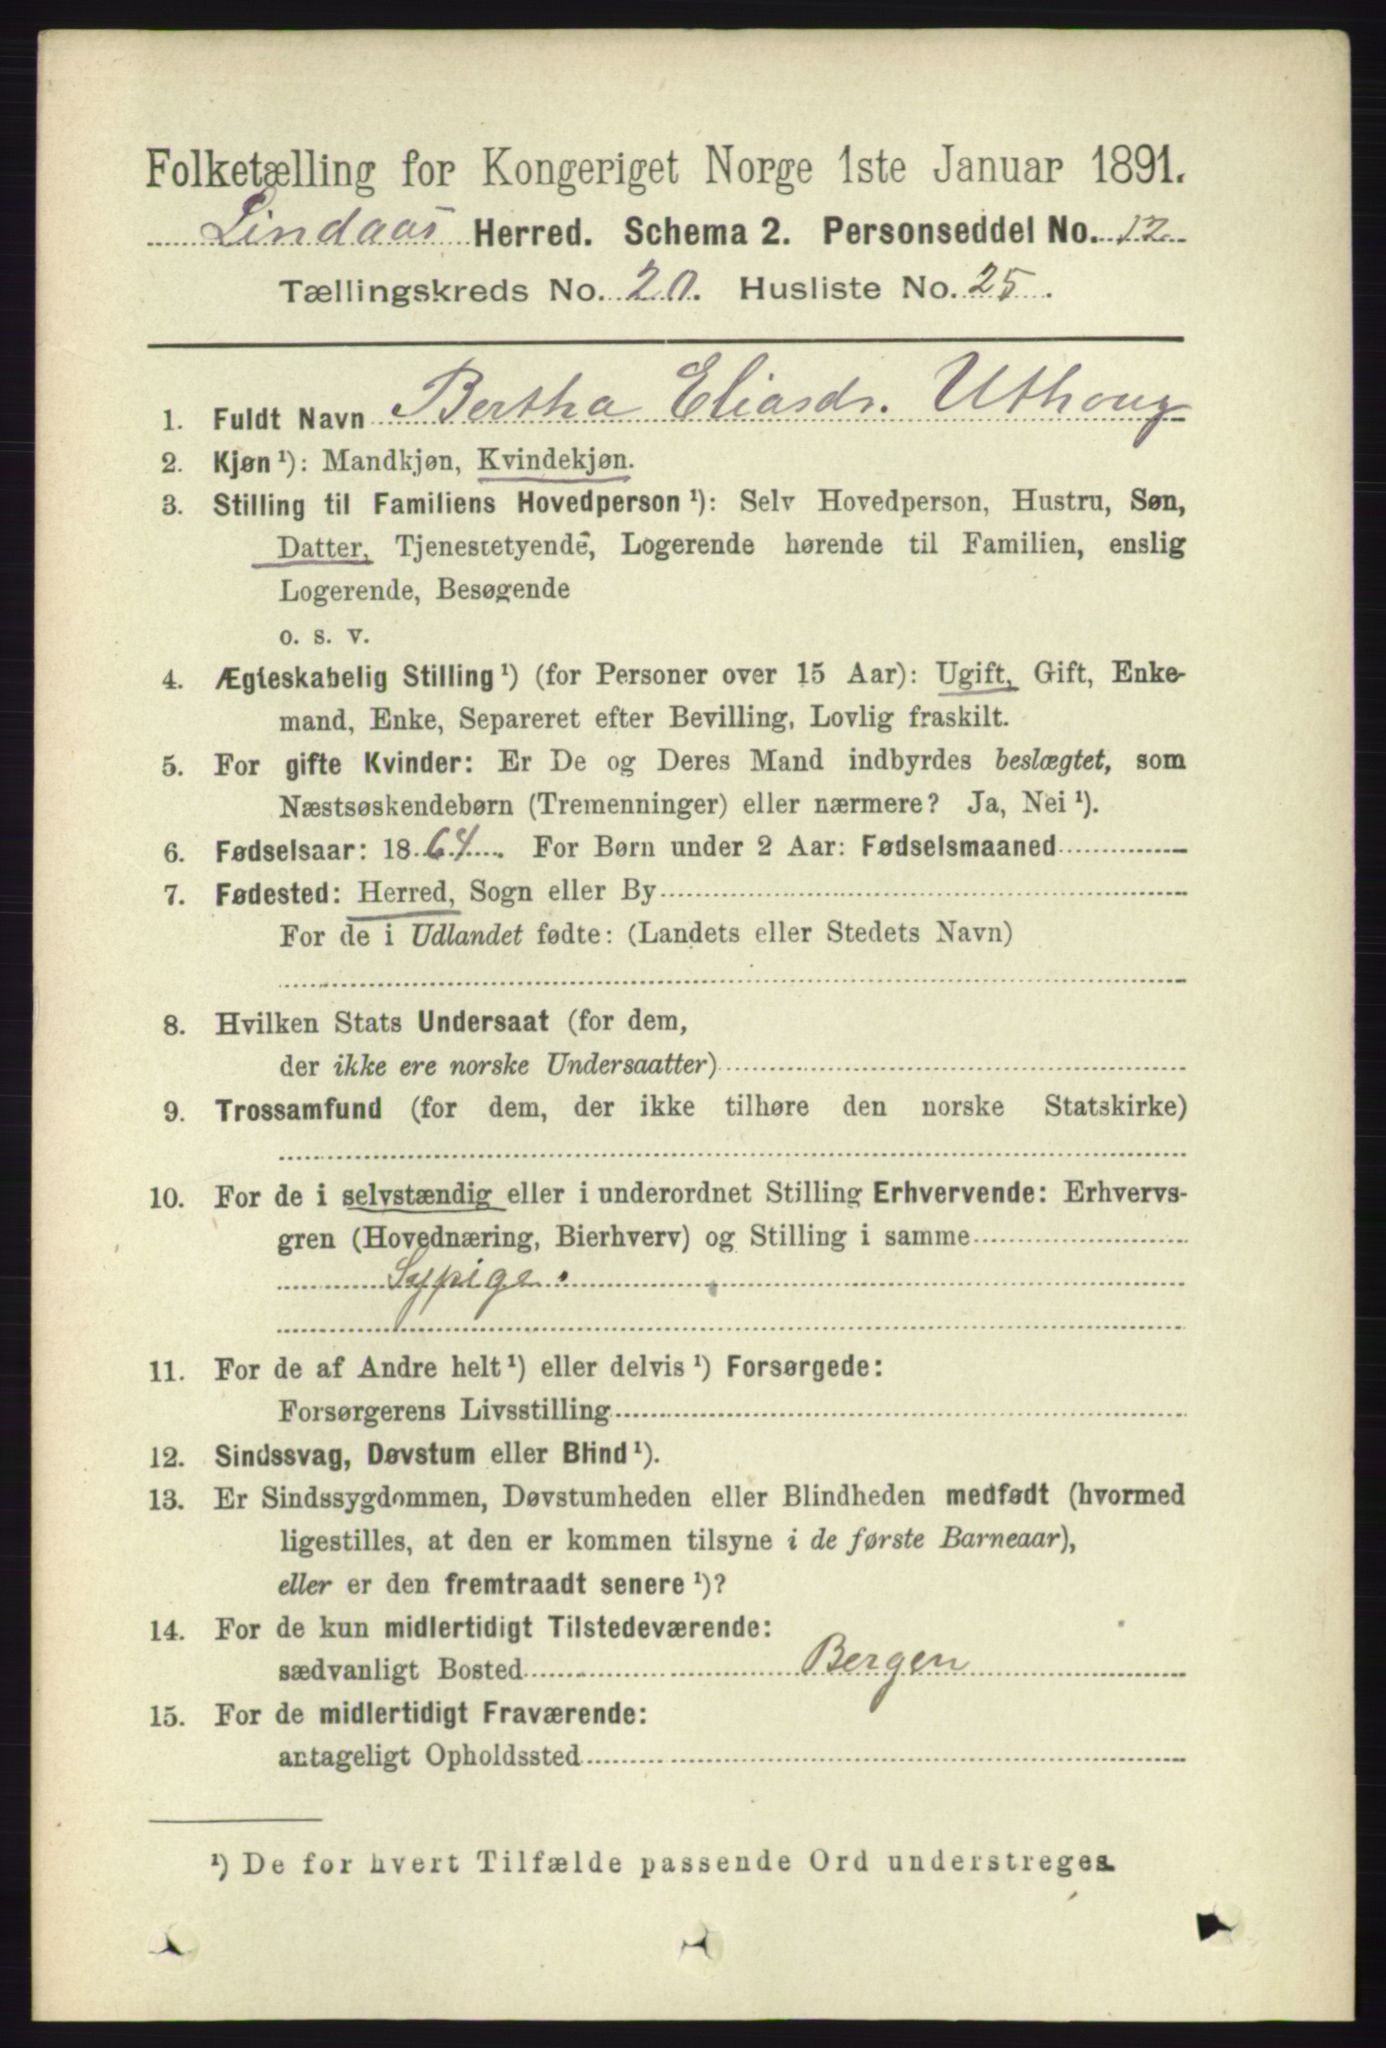 Folketælling for Kongeriget Norge 1ste Januar 1891.
Lindaas Herred. Schema 2. Personseddel No. 12
Tællingskreds No. 20. Husliste No. 25.
1. Fuldt Navn Bertha Eliasdr. Uthoug
2. Kjøn ¹): Mandkjøn, Kvindekjøn.
3. Stilling til Familiens Hovedperson ¹): Selv Hovedperson, Hustru, Søn,
Datter, Tjenestetyende, Logerende hørende til Familien, enslig
Logerende, Besøgende
o. s. v.
4. Ægteskabelig Stilling ¹) (for Personer over 15 Aar): Ugift, Gift, Enke-
mand, Enke, Separeret efter Bevilling, Lovlig fraskilt.
5. For gifte Kvinder: Er De og Deres Mand indbyrdes beslægtet, som
Næstsøskendebørn (Tremenninger) eller nærmere? Ja, Nei ¹).
6. Fødselsaar: 1864. For Børn under 2 Aar: Fødselsmaaned
7. Fødested: Herred, Sogn eller By
For de i Udlandet fødte: (Landets eller Stedets Navn)
8. Hvilken Stats Undersaat (for dem,
der ikke ere norske Undersaatter)
9. Trossamfund (for dem, der ikke tilhøre den norske Statskirke)
10. For de i selvstændig eller i underordnet Stilling Erhvervende: Erhvervs-
gren (Hovednæring, Bierhverv) og Stilling i samme
Sypige.
11. For de af Andre helt ¹) eller delvis ¹) Forsørgede:
Forsørgerens Livsstilling
12. Sindssvag, Døvstum eller Blind ¹).
13. Er Sindssygdommen, Døvstumheden eller Blindheden medfødt (hvormed
ligestilles, at den er kommen tilsyne i de første Barneaar),
eller er den fremtraadt senere ¹)?
14. For de kun midlertidigt Tilstedeværende:
sædvanligt Bosted Bergen
15. For de midlertidigt Fraværende:
antageligt Opholdssted
¹) De for hvert Tilfælde passende Ord understreges.